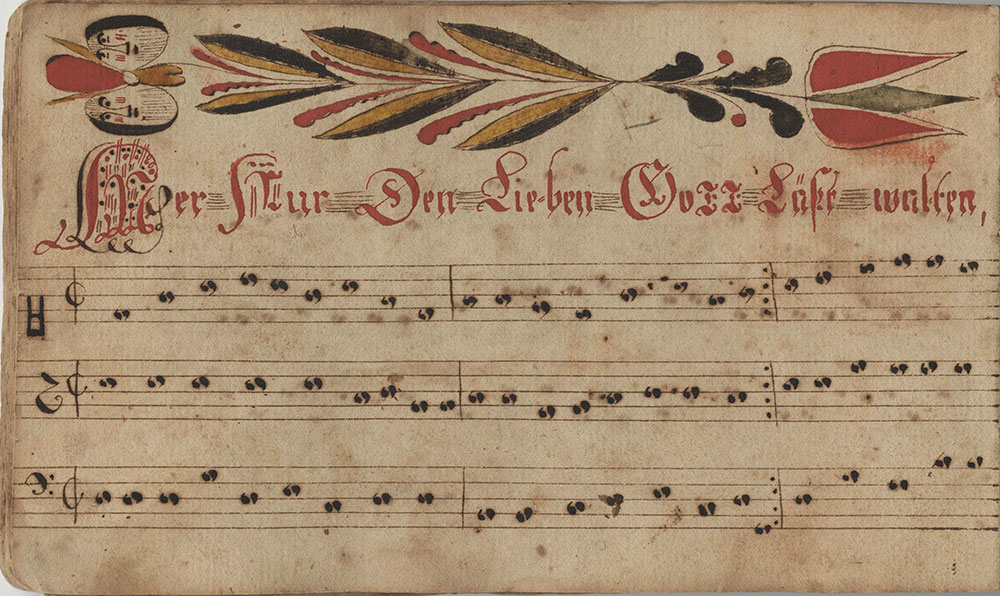 Wer Nur Den Lie-ben Gott Läst walten,